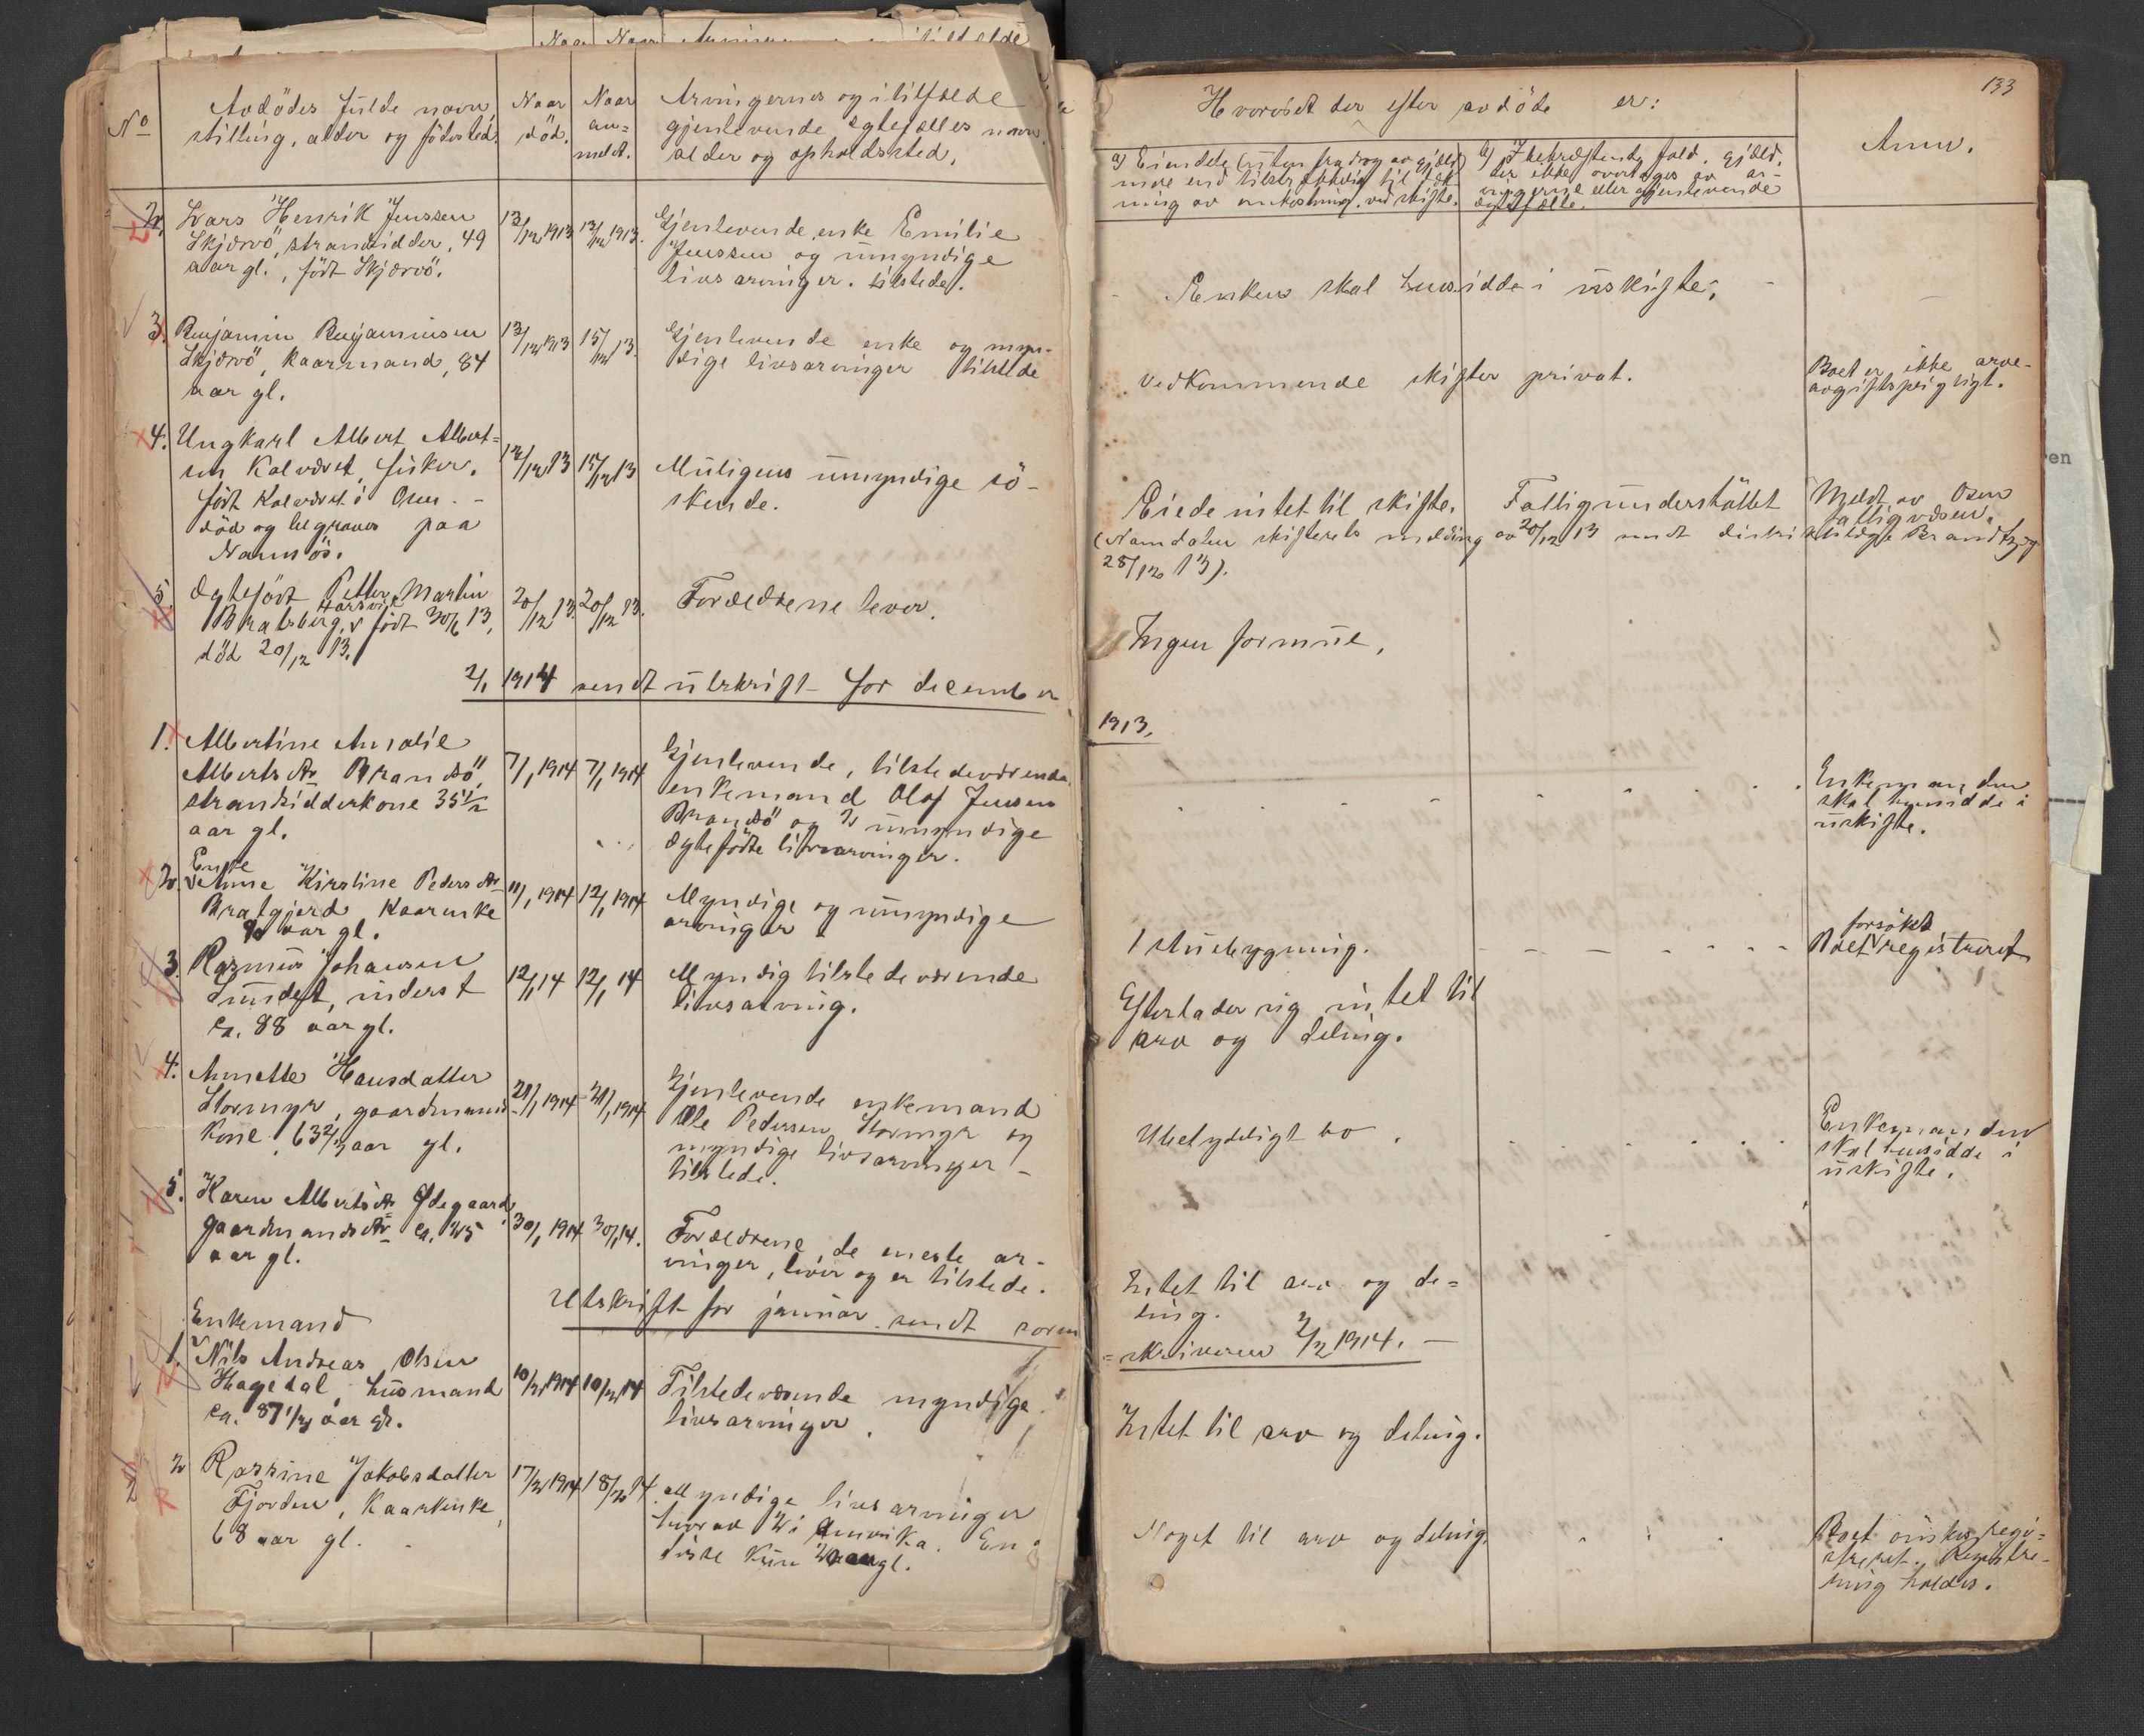 No
Avdödes fulde navn,
stilling, alder og födested.
Naar
död.
Naar
an=
meldt.
Arvingernes og i tilfælde
gjenlevende egtefælles navn
alder og opholdssted.
2.
Lars Henrik Jenssen
Skjærvö, strandsidder, 49
aar gl., född Skjærvö.
13/12 1913
13/12 1913.
Gjenlevende enke Emilie
Jenssen og umyndige
livsarvinger. tilstede.
3.
Benjamin Benjaminsen
Skjærvö, kaarmand, 84
aar gl.
13/12 1913
15/12 13.
Gjenlevende enke og myn-
dige livsarvinger tilstede
4.
Ungkarl Albert Albert=
sen Kalvæset, fisker.
födt Kalvæset i Osen. -
död og begraves paa
Namsos.
12/12 13
15/12 13
Muligens umyndige sö-
skende.
5.
Ægtefödt Petter Martin
Bratsberg, Harsvik födt 30/6 13,
död 20/12 13.
20/12 13.
20/12 13.
Forældrene lever.
2/1 1914 sendt utskrift for december
1.
Albertine Amalie
Albertsdtr Brandsö,
strandsidderkone 35 1/2
aar gl.
7/1 1914
7/1 1914
Gjenlevende, tilstedeværende
enkemand Olaf Jensen
Brandsö og 2 umyndige
ægtefödte livsarvinger.
2.
Enke
Anne Kirstine Pedersdtr
Bratgjerd kaarenke
aar gl.
11/1 1914
12/1 1914
Myndige og umyndige
arvinger
3.
Rasmus Johansen
Sundet, inderst
ca. 88 aar gl.
12/1 14
12/1 14
Myndig tilstedeværende
livsarving.
4.
Annette Hansdatter
Stormyr, gaardmands
kone, 63 aar gl.
21/1 1914
21/1 1914
Gjenlevende enkemand
Ole Pedersen Stormyr og
myndige livsarvinger -
tilstede.
5.
Karen Albertsdtr Ødegaard,
gaardmandsdtr ca. 25
aar gl.
30/1 1914
30/1 14.
Forældrene, de eneste ar-
vinger, lever og er tilstede.
Utskrift for januar sendt soren
1.
Enkemand
Nils Andreas Olsen
Hagedal, husmand
ca. 87 1/2 aar gl.
10/2 1914
10/2 14
Tilstedeværende myndige
livsarvinger.
2
Rassine Jakobsdatter
Fjorden, kaarenke,
68 aar gl.
17/2 1914
18/2 14
Myndige livsarvinger
hvorav 2 i Amerika. En
133
Hvorvidt der efter avdöde er:
a) Eiendele (uten fradrag av gjæld)
mere end tilstrækkelig til dæk-
ning av omkostning. ved skifte.
b) I bekræftende fald. gjæld,
der ikke overtages av ar-
vingerne eller gjenlevende
ægtefælle.
Anm.
Enken skal hensidde i uskifte.
Vedkommende skifter privat.
Boet er ikke arve-
avgiftspligtigt.
Eiede intet til skifte.
Fattigunderstöttet
Meldt av Osen
fattigvæsen.
(Namdalen skifterets melding av 20/12 13 sendt
28/12 13).
Ingen formue.
1913.
Enkemanden
skal hensidde i
uskifte.
1 stuebygning.
forsökes
Boet registreret
Efterlader sig intet til
arv og deling.
Ubetydeligt bo.
Enkemanden
skal hensidde i
uskifte.
Intet til arv og de=
ling.
=skriveren 2/2 1914. -
Intet til arv og deling.
Noget til arv og deling.
Boet önskes regi=
streret. Registre-
ring holdes.